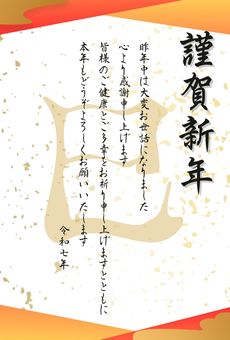 謹賀新年
昨年中は大変お世話になりました
心より感謝申し上げます
皆様のご健康とご多幸をお祈り申し上げますとともに
本年もどうぞよろしくお願いいたします
令和七年
巳